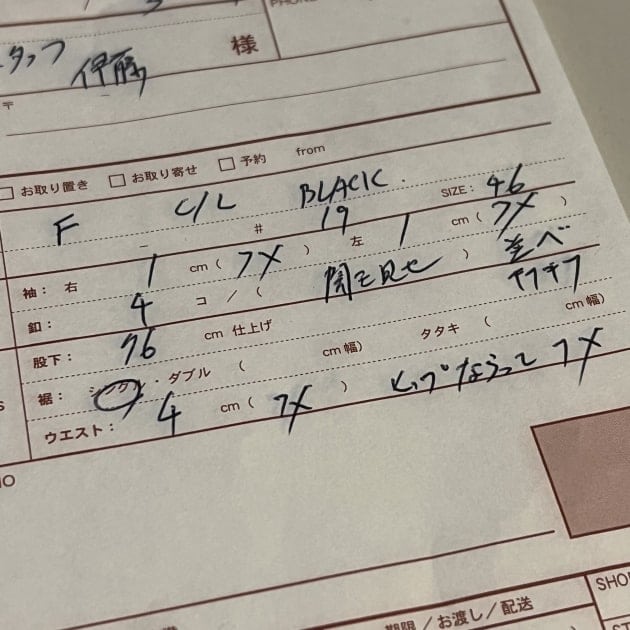 PHONE
スタッフ 伊藤 様
〒
お取り置き お取り寄せ 予約 from
F C/L BLACK. SIZE: 46
– # 19
袖: 右 1 cm ( ツメ ) 左 1 cm ( ツメ )
釦: 4 コ / ( 開き見せ ) 並べ
股下: 76 cm 仕上げ
裾: シングル・ダブル ( cm 幅) タタキ ( cm 幅)
ウエスト: 4 cm ( ツメ ) ヒップならって ツメ
期限/お渡し/配送